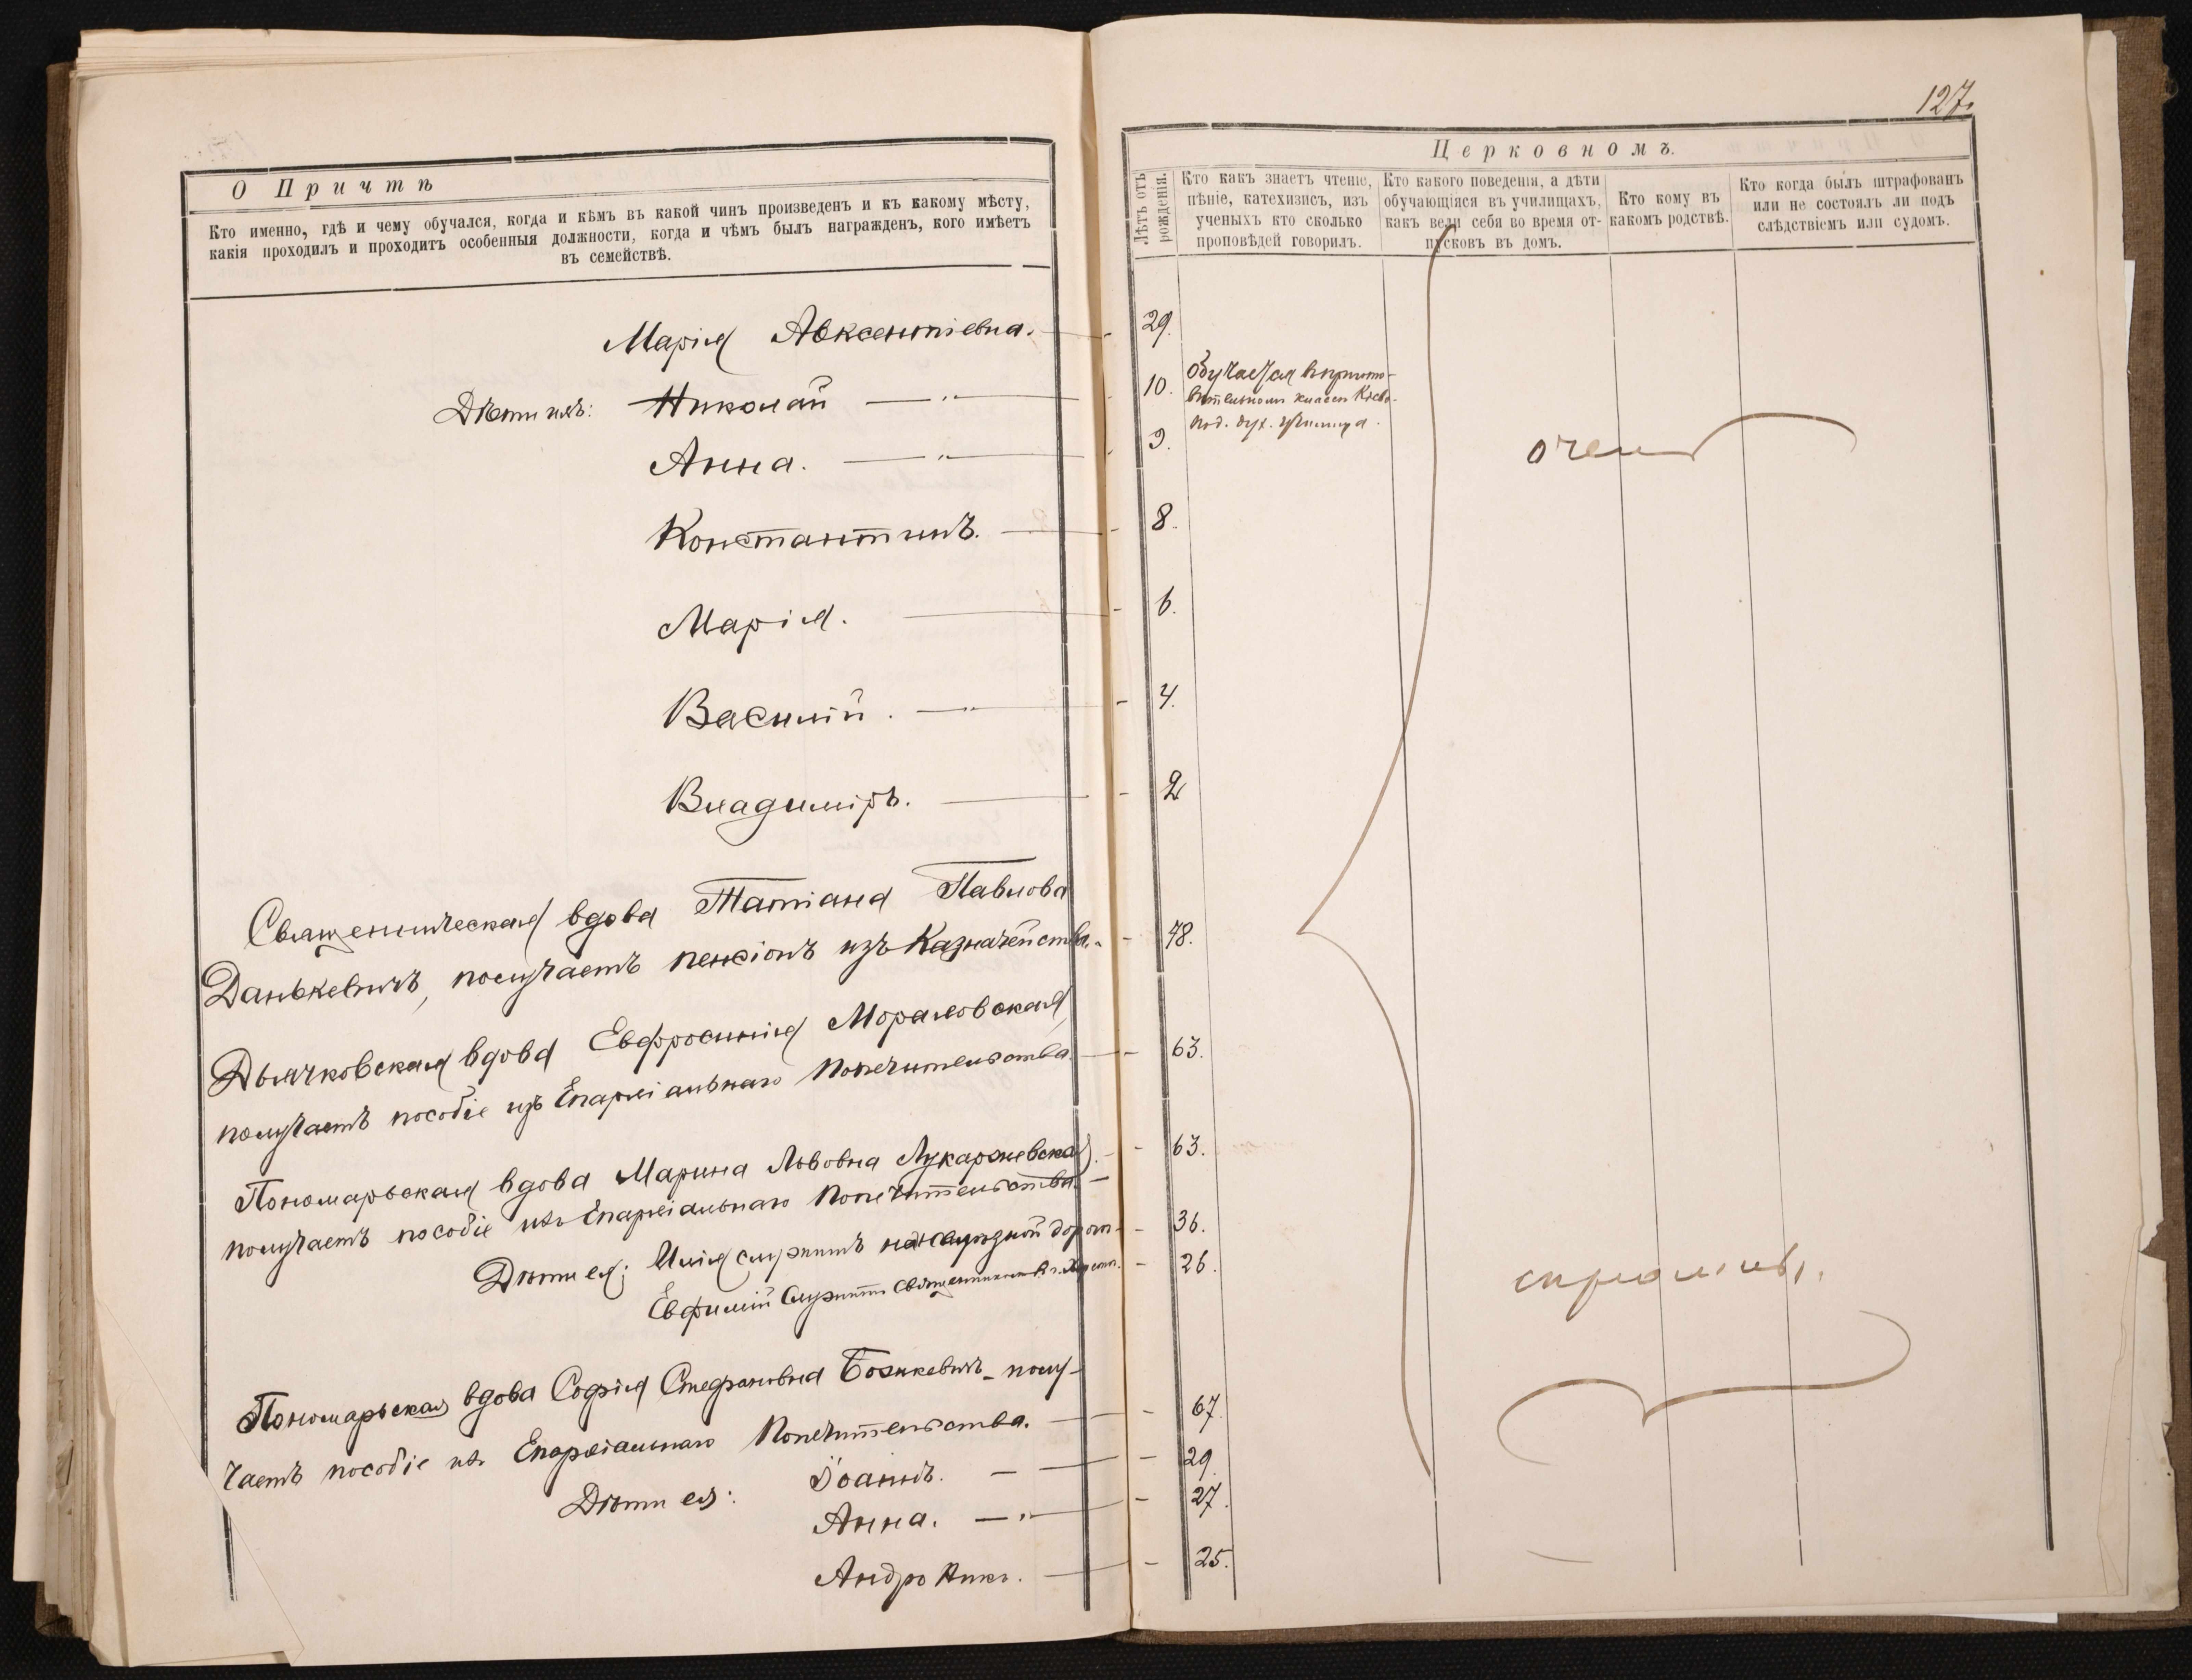 127.
О Причтѣ
Церковномъ.
Кто именно, гдѣ и чему обучался, когда и кѣмъ въ какой чинъ произведенъ и къ какому мѣсту,
какія проходилъ и проходитъ особенныя должности, когда и чѣмъ былъ награжденъ, кого имѣетъ
въ семействѣ.
Лѣтъ отъ
рожденія.
Кто какъ знаетъ чтеніе,
пѣніе, катехизисъ, изъ
ученыхъ кто сколько
проповѣдей говорилъ.
Кто какого поведенія, а дѣти
обучающіяся въ училищахъ,
какъ вели себя во время от-
пусковъ въ домъ.
Кто кому въ
какомъ родствѣ.
Кто когда былъ штрафованъ
или не состоялъ ли подъ
слѣдствіемъ или судомъ.
Марія Авксентіевна. 29.
Дѣти ихъ: Николай 10.
Обучается въ пригото-
вительномъ классѣ Кіево-
под. дух. училища.
Анна. 9.
очень
Константинъ. 8.
Марія. 6.
Василій. 4.
Владиміръ. 2
Священническая вдова Татіана Павлова
Данькевичъ, получаетъ пенсіонъ изъ Казначейства. 48.
Дьячковская вдова Евфросинія Мораловская,
получаетъ пособіе изъ Епархіальнаго Попечительства. 63.
Пономарьская вдова Марина Львовна Лукаржевская. 63.
получаетъ пособіе изъ Епархіальнаго Попечительства.
Дѣти ея: Илія служитъ на дорогѣ 36.
Евфимій служитъ священникомъ въ 26.
скромны.
Пономарьская вдова Софія Стефановна Божкевичъ - полу-
чаетъ пособіе изъ Епархіальнаго Попечительства. 67.
Дѣти ея: Іоаннъ. 29.
Анна. 27.
Андроникъ. 25.